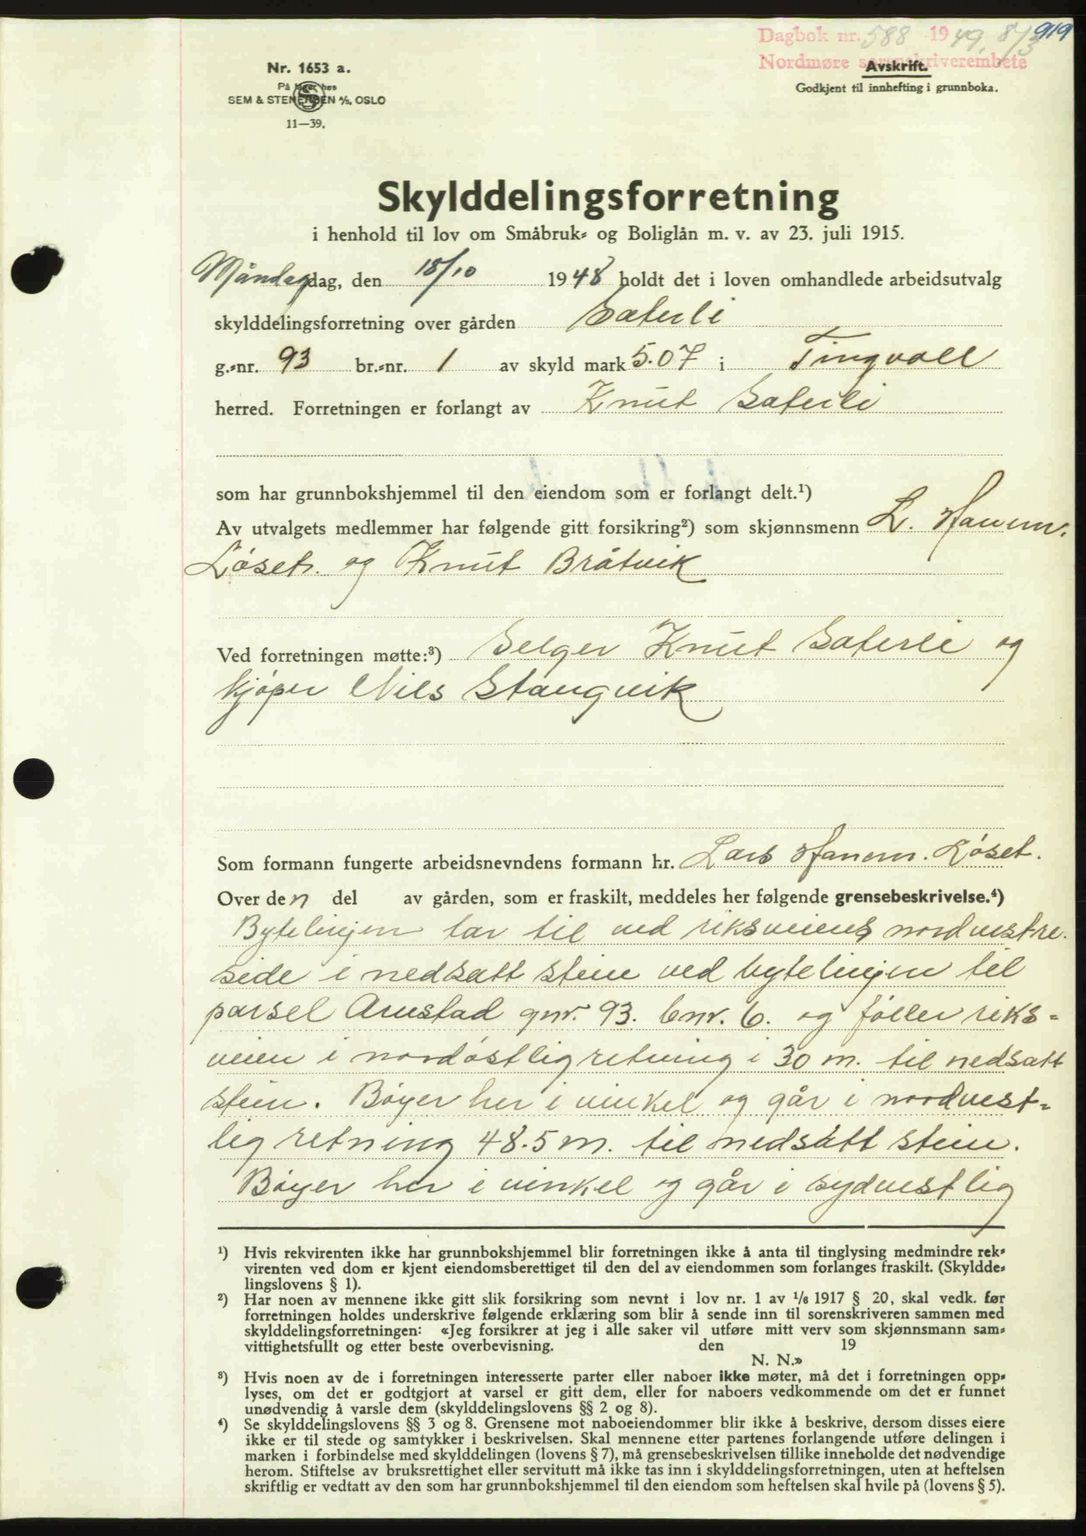 Dagbok nr. 588 1949, 8/3 919
Nordmøre sorenskriverembete
Nr. 1653 a.
Avskrift.
På lager hos
Godkjent til innhefting i grunnboka.
SEM & STENERSEN A/S, OSLO
11—39.
Skylddelingsforretning
i henhold til lov om Småbruk- og Boliglån m. v. av 23. juli 1915.
Måndag dag, den 18/10 1948 holdt det i loven omhandlede arbeidsutvalg
skylddelingsforretning over gården Saterli
g.-nr. 93 br.-nr. 1 av skyld mark 5.07 i Tingvoll
herred. Forretningen er forlangt av Knut Saterli
som har grunnbokshjemmel til den eiendom som er forlangt delt.¹)
Av utvalgets medlemmer har følgende gitt forsikring²) som skjønnsmenn L. Hanem.
Løset. og Knut Bråtvik
Ved forretningen møtte:³) Selger Knut Saterli og
kjøper Nils Stangvik
Som formann fungerte arbeidsnevndens formann hr. Lars Hanem. Løset.
Over den del av gården, som er fraskilt, meddeles her følgende grensebeskrivelse.⁴)
Bytelinjen tar til ved riksveiens nordvestre.
side i nedsatt stein ved bytelinjen til
parsel Arnstad gnr. 93. bnr. 6. og føller riks-
veien i nordøstlig retning i 30 m. til nedsatt
stein. Bøyer her i vinkel og går i nordvest-
lig retning 48.5 m. til nedsatt stein.
Bøyer her i vinkel og går i sydvestlig
¹) Hvis rekvirenten ikke har grunnbokshjemmel blir forretningen ikke å anta til tinglysing medmindre rek-
virenten ved dom er kjent eiendomsberettiget til den del av eiendommen som forlanges fraskilt. (Skyldde-
lingslovens § 1).
²) Har noen av mennene ikke gitt slik forsikring som nevnt i lov nr. 1 av 1/6 1917 § 20, skal vedk. før
forretningen holdes underskrive følgende erklæring som blir å sende inn til sorenskriveren sammen med
skylddelingsforretningen: «Jeg forsikrer at jeg i alle saker vil utføre mitt verv som skjønnsmann sam-
vittighetsfullt og etter beste overbevisning. den 19
N. N.»
³) Hvis noen av de i forretningen interesserte parter eller naboer ikke møter, må det i forretningen opp-
lyses, om det er godtgjort at varsel er gitt dem, eller for naboers vedkommende om det er funnet
unødvendig å varsle dem (skylddelingslovens §§ 2 og 8).
⁴) Se skylddelingslovens §§ 3 og 8. Grensene mot naboeiendommer blir ikke å beskrive, dersom disses eiere
ikke er til stede og samtykker i beskrivelsen. Skal mennene etter partenes forlangende utføre delingen i
marken i forbindelse med skylddelingen (lovens § 7), må grensebeskrivelsen tillike inneholde det nødvendige
herom. Stiftelse av bruksrettighet eller servitutt må ikke tas inn i skylddelingsforretningen, uten at heftelsen
skriftlig er vedtatt av den som har grunnbokshjemmel til den eiendom som heftelsen skal hvile på (lovens § 5).